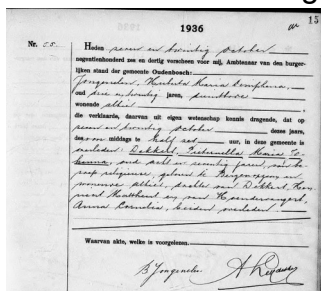 1936
15
Nr. 55.
Heden zeven en twintig october
negentienhonderd zes en dertig verscheen voor mij, Ambtenaar van den burger-
lijken stand der gemeente Oudenbosch:
Jongenelen, Huberta Maria
oud drie en twintig jaren,
wonende alhier
die verklaarde, daarvan uit eigen wetenschap kennis dragende, dat op
zeven en twintig october dezes jaars,
des voor middags te half acht uur, in deze gemeente is
overleden: Dekkers, Petronella Maria Jo-
hanna, oud acht en zeventig jaren, van be-
roep religieuse, geboren te Bergen op Zoom en
wonende alhier, dochter van Dekkers,
en van
Anna Cornelia, beiden overleden.
Waarvan akte, welke is voorgelezen.
B Jongenelen